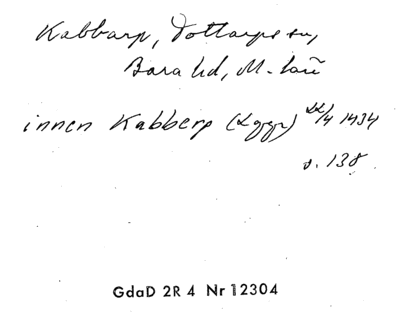 Kabbarp, Tottarps sn,
Bara hd, M. län
innen Kabberp (Lggr) 22/4 1434
s. 138
GdaD 2R 4 Nr 12304